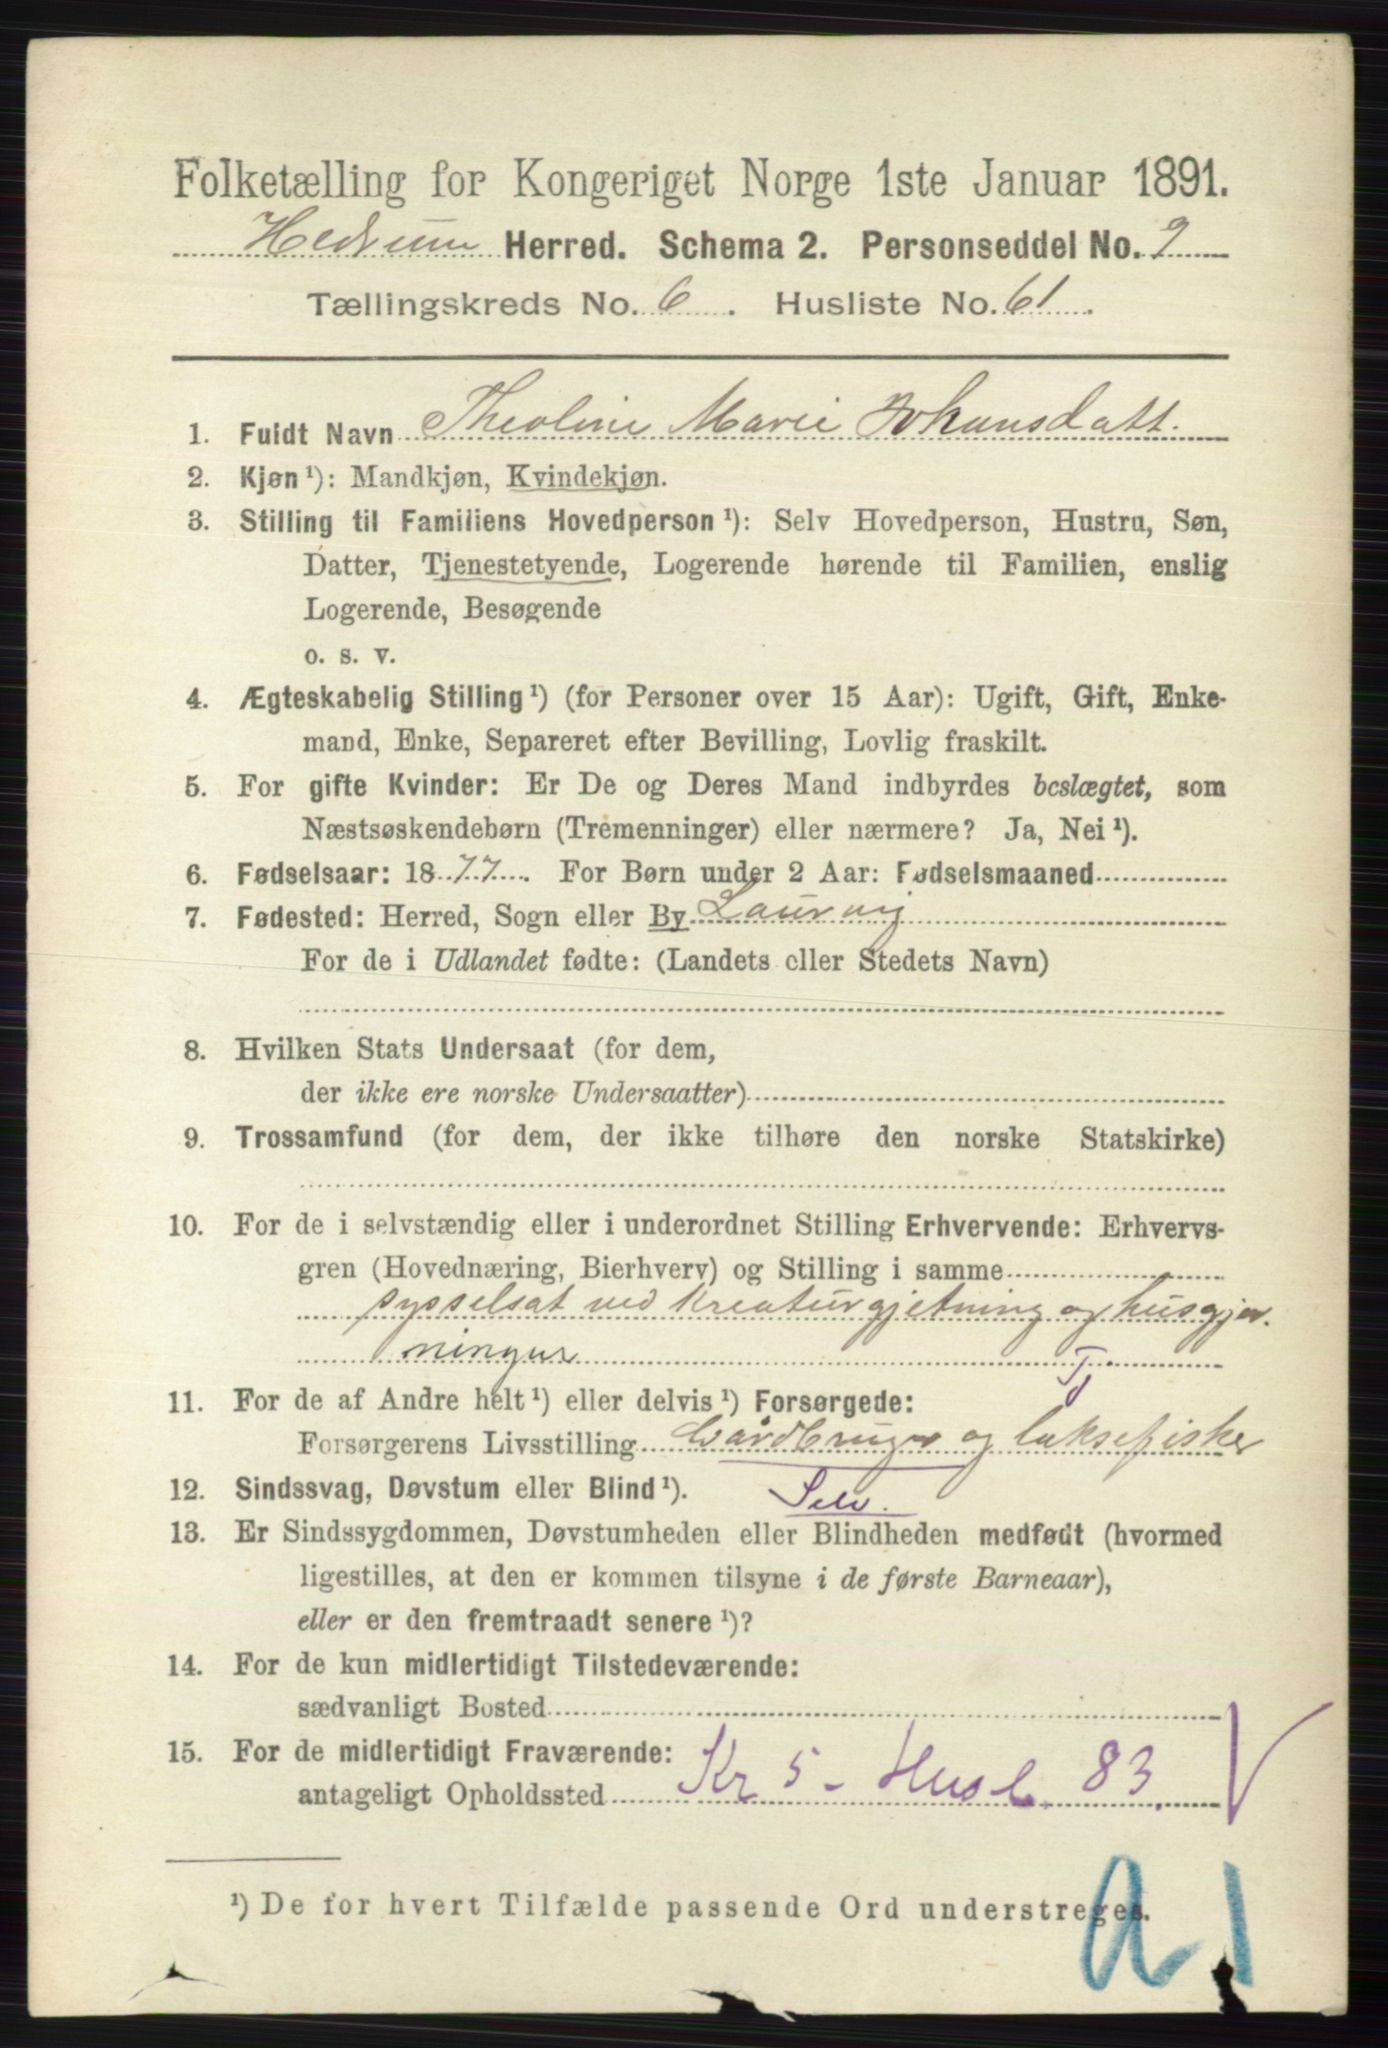 Folketælling for Kongeriget Norge 1ste Januar 1891.
Hedrum Herred. Schema 2. Personseddel No. 9
Tællingskreds No. 6. Husliste No. 61.
1. Fuldt Navn Theoline Marie Johansdatt.
2. Kjøn ¹): Mandkjøn, Kvindekjøn.
3. Stilling til Familiens Hovedperson ¹): Selv Hovedperson, Hustru, Søn,
Datter, Tjenestetyende, Logerende hørende til Familien, enslig
Logerende, Besøgende
o. s. v.
4. Ægteskabelig Stilling ¹) (for Personer over 15 Aar): Ugift, Gift, Enke-
mand, Enke, Separeret efter Bevilling, Lovlig fraskilt.
5. For gifte Kvinder: Er De og Deres Mand indbyrdes beslægtet, som
Næstsøskendebørn (Tremenninger) eller nærmere? Ja, Nei ¹).
6. Fødselsaar: 1877. For Børn under 2 Aar: Fødselsmaaned
7. Fødested: Herred, Sogn eller By Laurvig
For de i Udlandet fødte: (Landets eller Stedets Navn)
8. Hvilken Stats Undersaat (for dem,
der ikke ere norske Undersaatter)
9. Trossamfund (for dem, der ikke tilhøre den norske Statskirke)
10. For de i selvstændig eller i underordnet Stilling Erhvervende: Erhvervs-
gren (Hovednæring, Bierhverv) og Stilling i samme
sysselsat ved Kreaturgjetning og husgjer-
ninger Tj
11. For de af Andre helt ¹) eller delvis ¹) Forsørgede:
Forsørgerens Livsstilling Gårdbruger og laksefisker
12. Sindssvag, Døvstum eller Blind ¹). Selv.
13. Er Sindssygdommen, Døvstumheden eller Blindheden medfødt (hvormed
ligestilles, at den er kommen tilsyne i de første Barneaar),
eller er den fremtraadt senere ¹)?
14. For de kun midlertidigt Tilstedeværende:
sædvanligt Bosted
15. For de midlertidigt Fraværende:
antageligt Opholdssted Kr 5 - Husl. 83. V
¹) De for hvert Tilfælde passende Ord understreges.
a 1